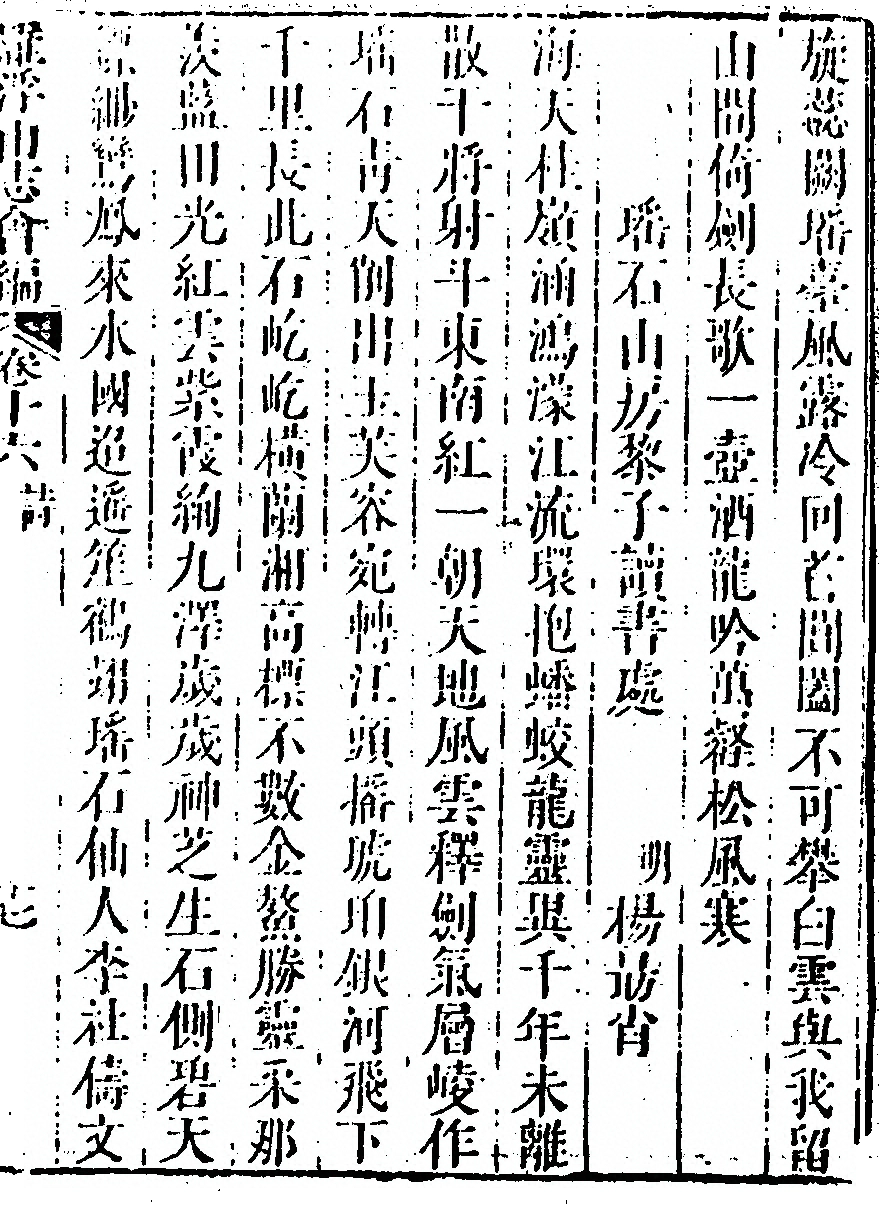 旋蕊闕瑤臺風露冷回首閶闔不可攀白雲與我留
山間倚劍長歌一壺酒龍吟萬壑松風寒
瑤石山房黎子讀書處 明 楊訪肖
海天柱嶺涵鴻濛江流環抱蟠蛟龍靈異千年未離
散干將射斗東南紅一朝天地風雲釋劍氣層崚作
瑤石青天削出玉芙容宛轉江頭搖琥珀銀河飛下
千里長此石屹屹橫蘭湘高標不數金鰲勝靈采那
羨藍田光紅雲紫霞絢九澤歲歲神芝生石側碧天
縹緲鸞鳳來水國迢遞笙鶴翊瑤石仙人李社儔文
羅浮山志會編 卷十六 詩